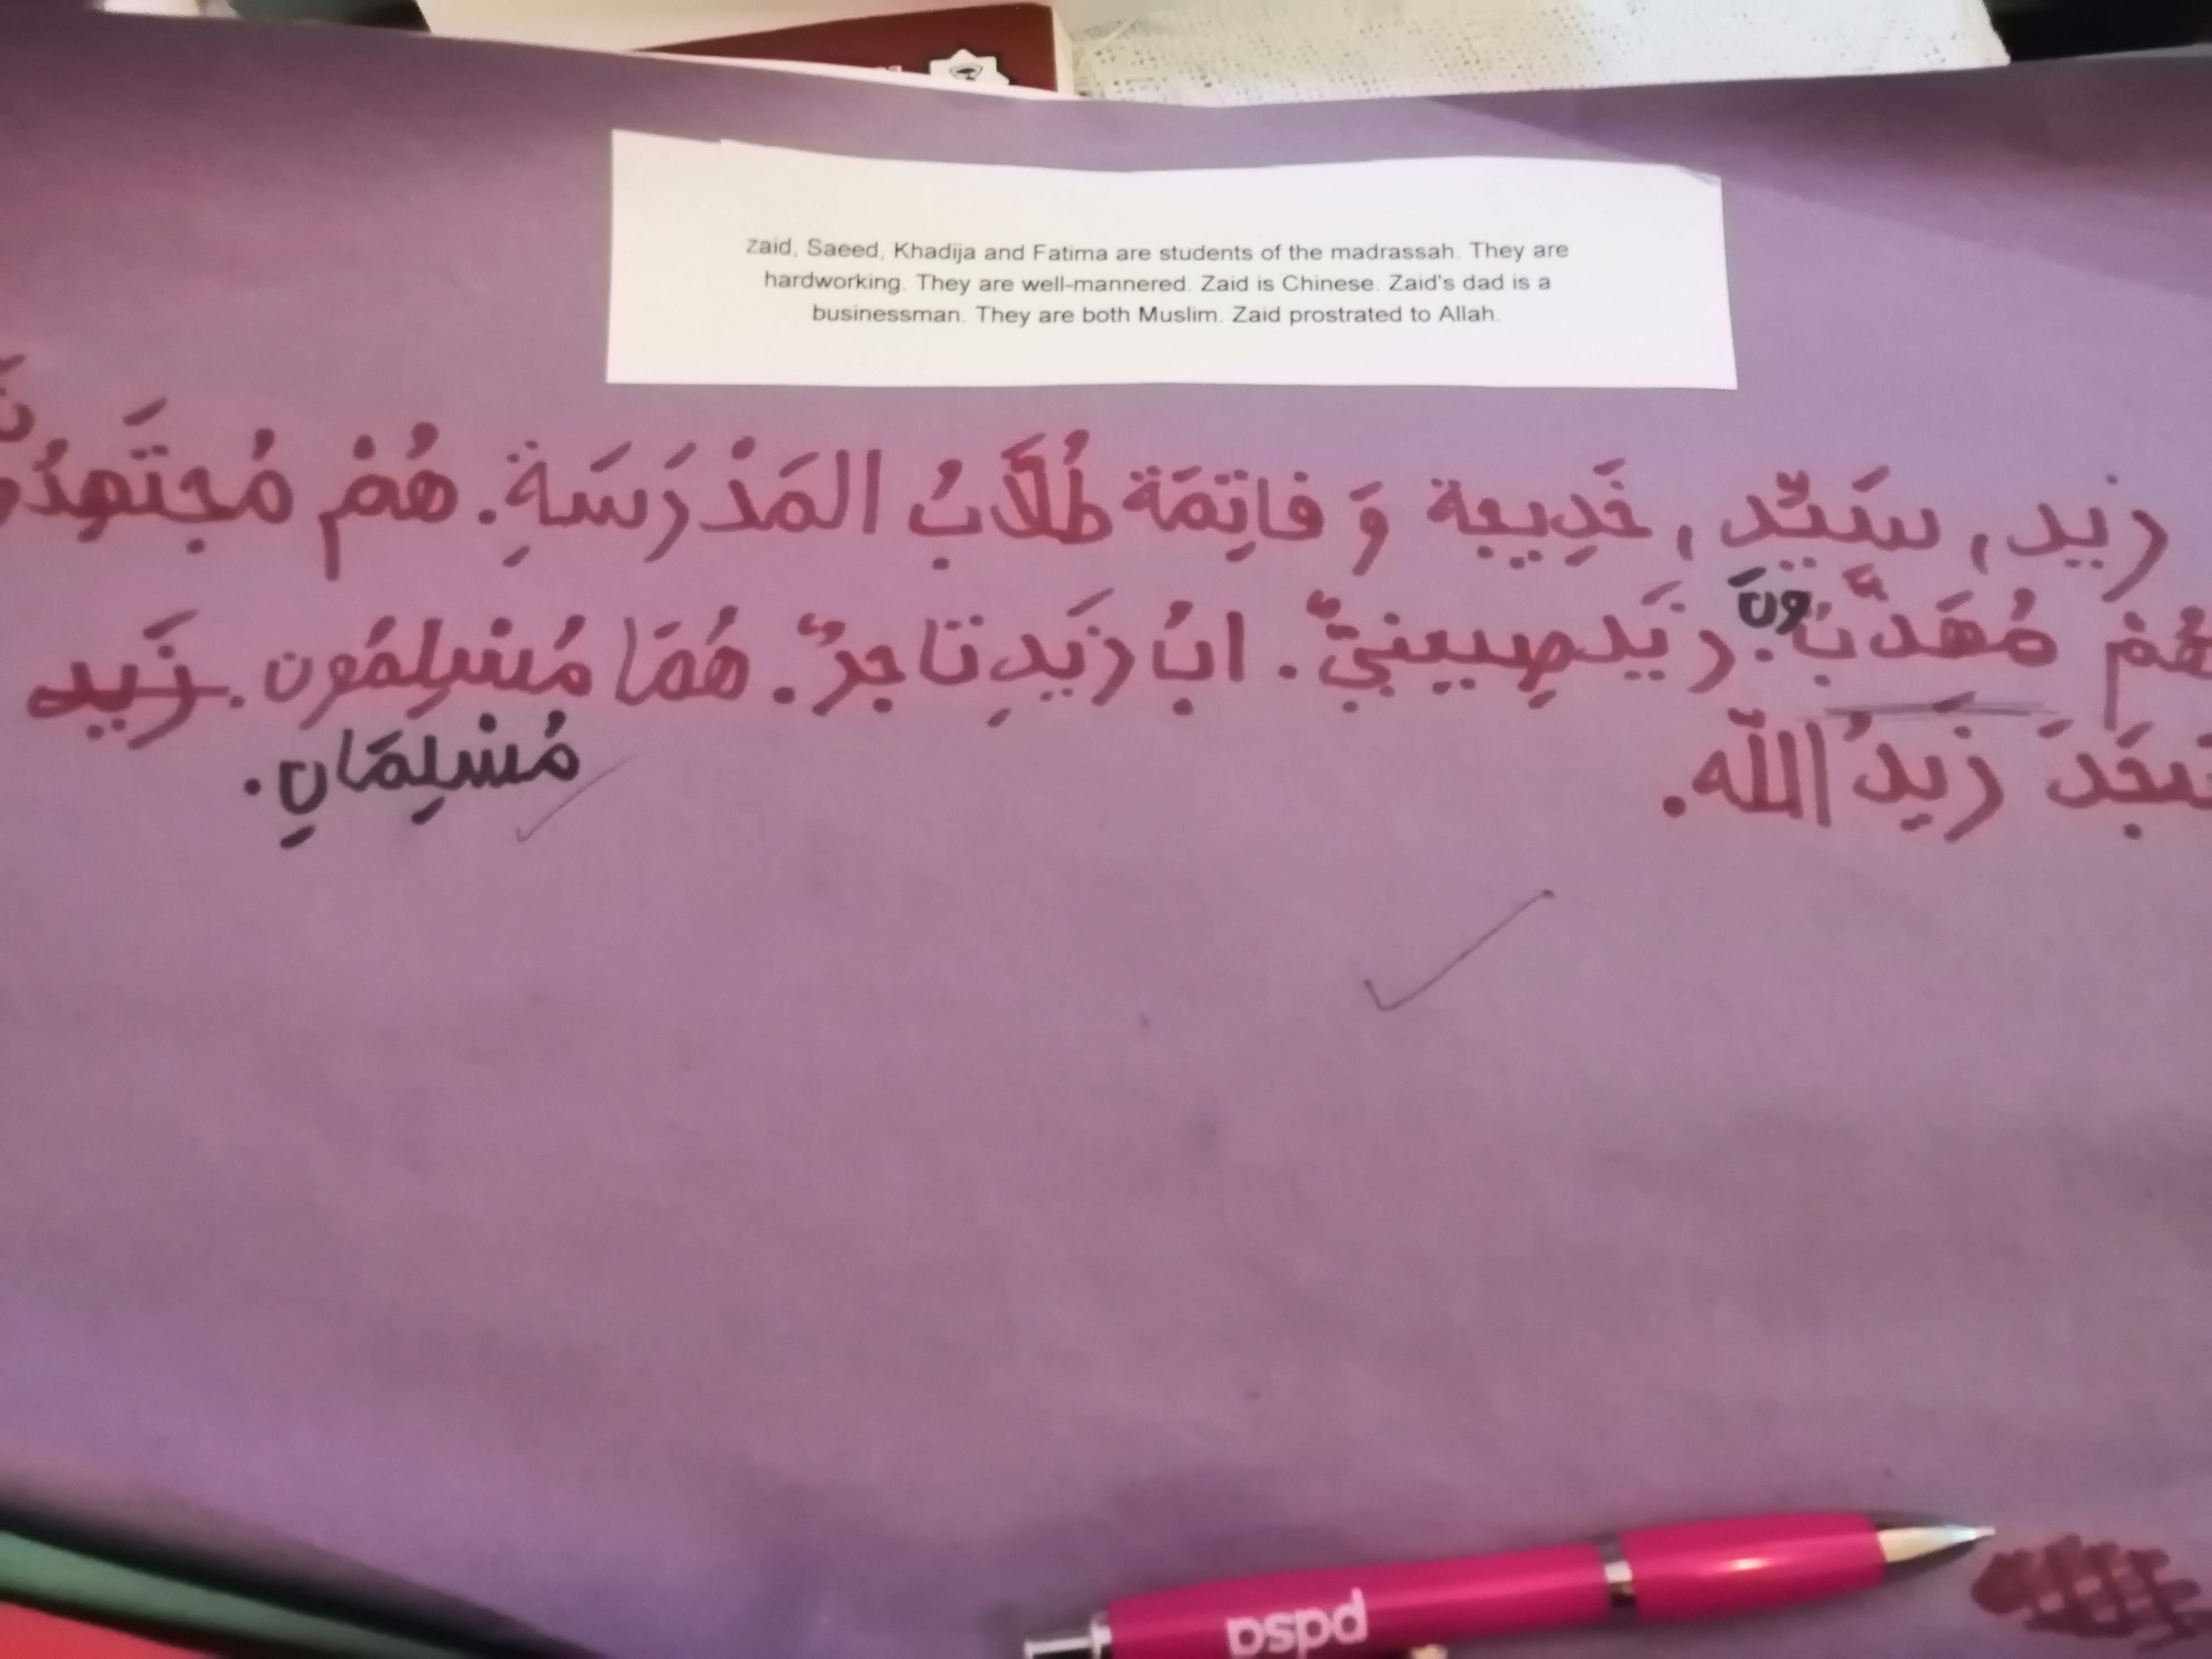 Zaid, Saeed, Khadija and Fatima are students of the madrassah. They are
hardworking. They are well-mannered. Zaid is Chinese. Zaid's dad is a
businessman. They are both Muslim. Zaid prostrated to Allah.
زيد، سَيّد، خَدِيجة وَ فاتِمَة طُلَّابُ المَدْرَسَةِ. هُمْ مُجتَهِدُونَ
هُمْ مُهَذَّبُونَ. زَيد صِيينِيٌّ. ابُ زَيدِ تاجرٌ. هُمَا مُسْلِمُون. زَيد
مُسْلِمَانِ.
سَجَدَ زَيدُ اللّه.
pdsa